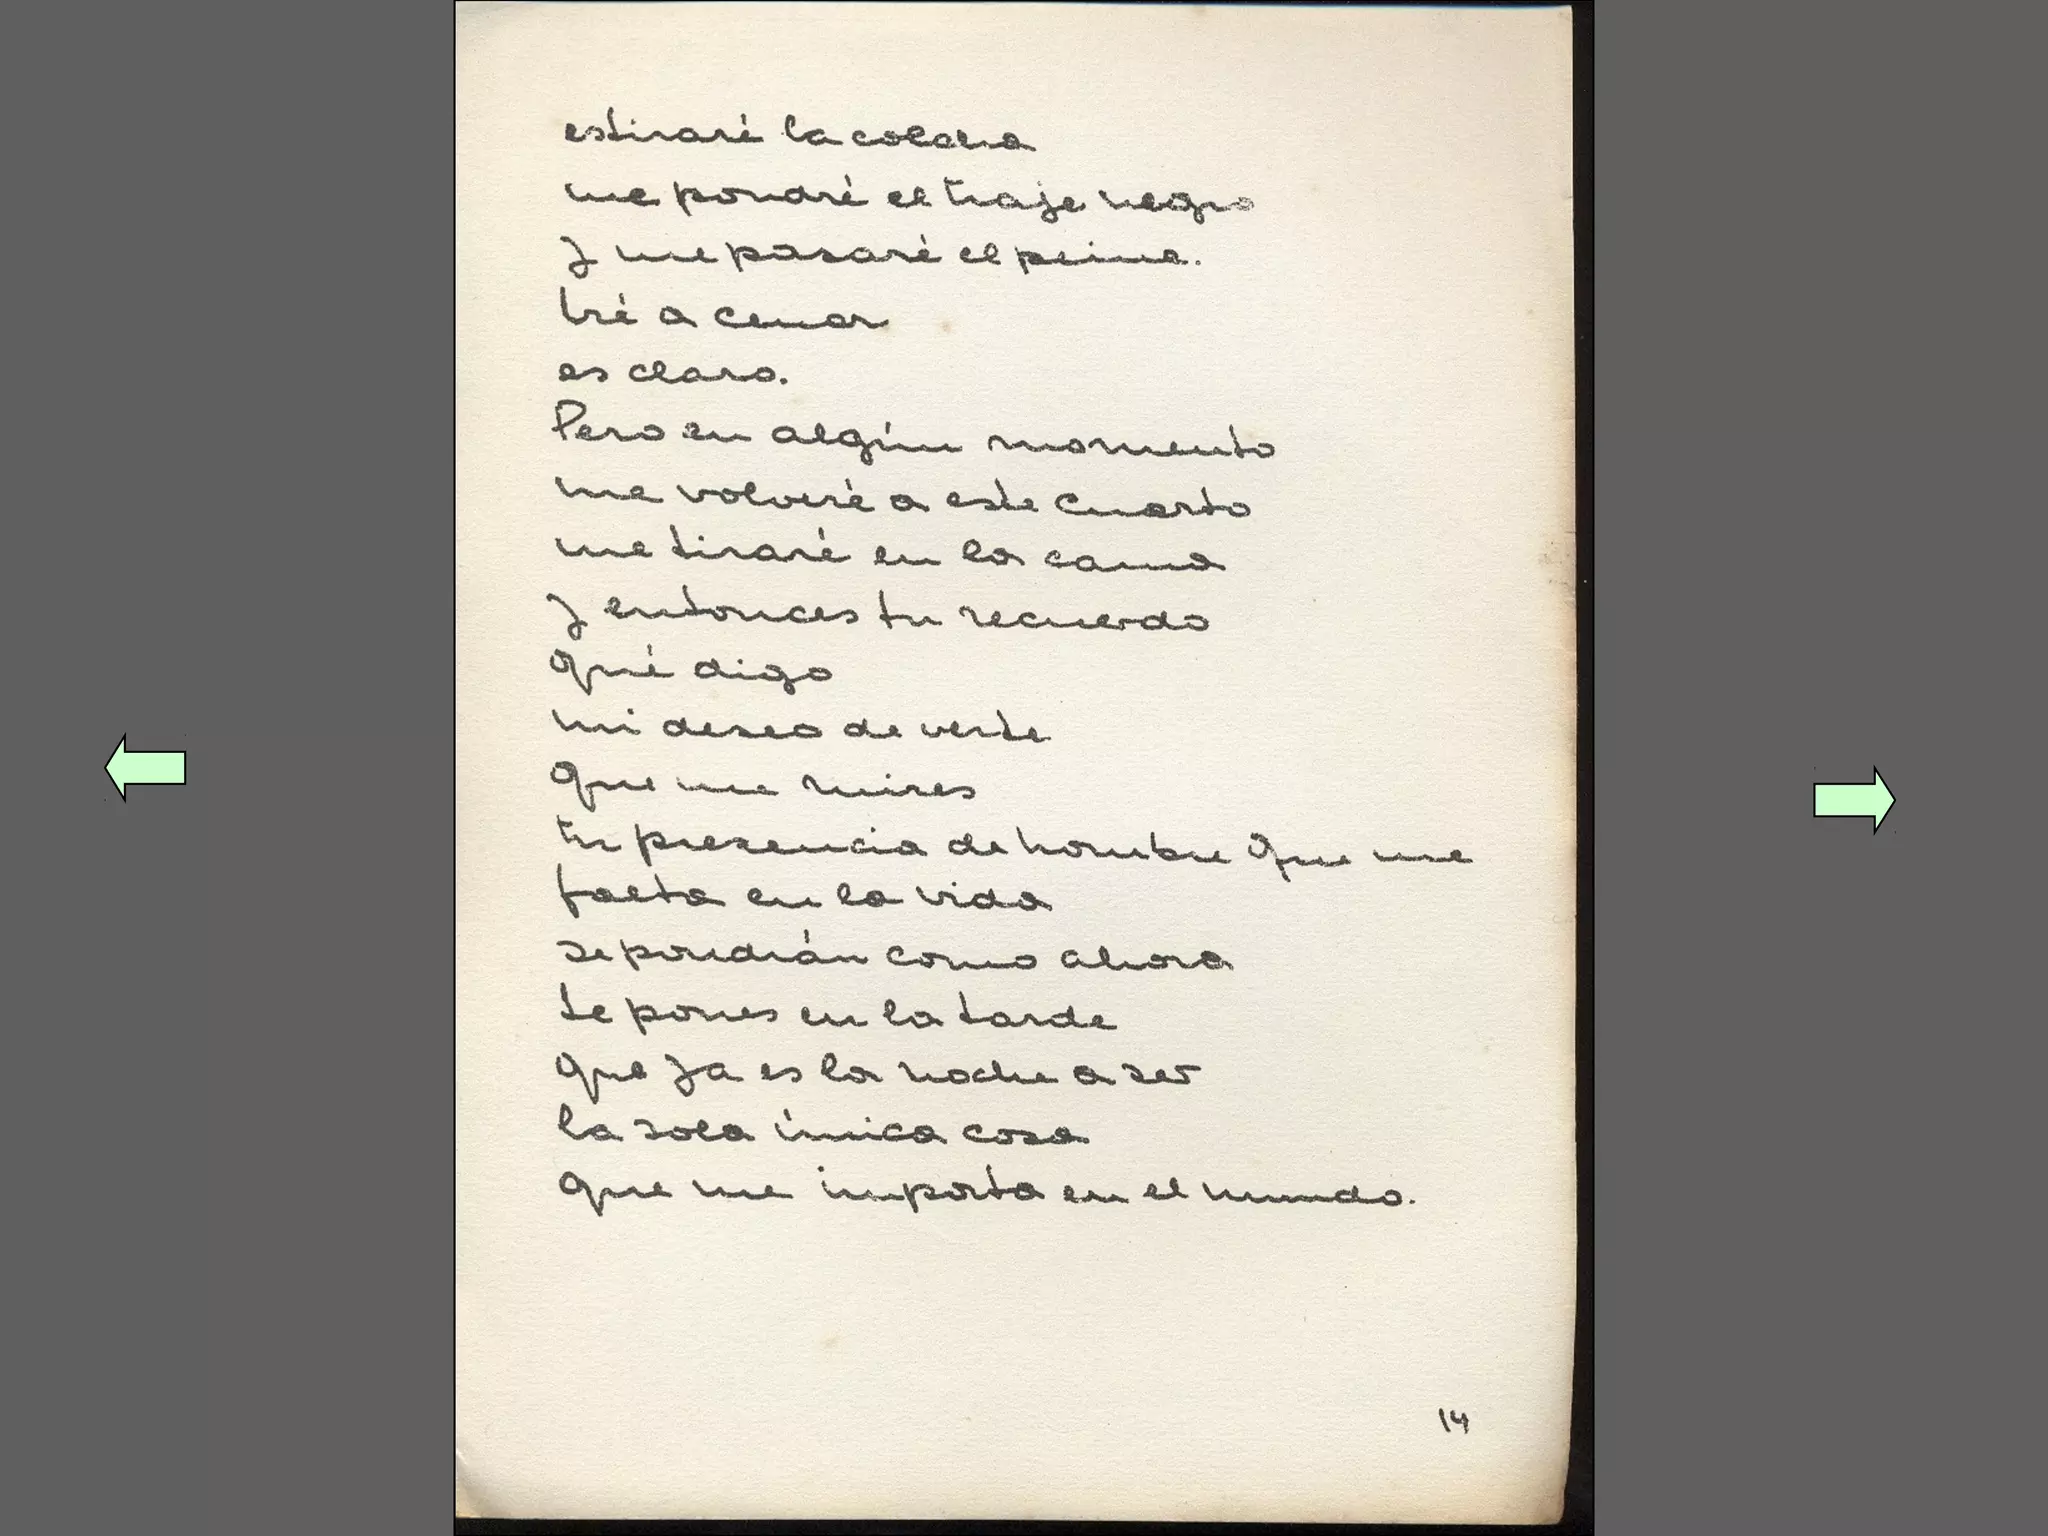 estiraré la colcha
me pondré el traje negro
y me pasaré el peine.
Iré a cenar
es claro.
Pero en algún momento
me volveré a este cuarto
me tiraré en la cama
y entonces tu recuerdo
qué digo
mi deseo de verte
que me mires
tu presencia de hombre que me
falta en la vida
se pondrán como ahora
te pones en la tarde
que ya es la noche a ser
la sola única cosa
que me importa en el mundo.
14